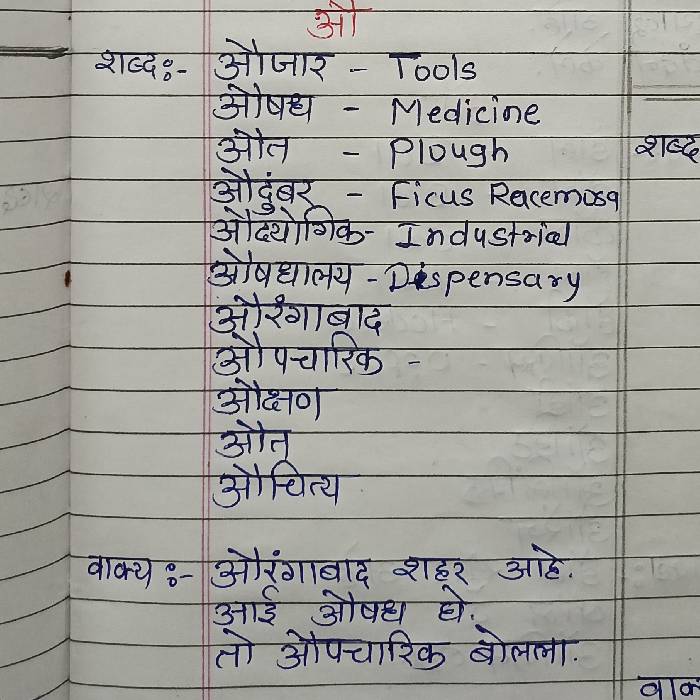 औ
शब्द :- औजार - Tools
औषध - Medicine
औत - Plough
औदुंबर - Ficus Racemosa
औद्योगिक - Industrial
औषधालय - Dispensary
औरंगाबाद
औपचारिक -
औक्षण
औत
औचित्य
वाक्य :- औरंगाबाद शहर आहे.
आई औषध घे.
तो औपचारिक बोलला.
शब्द